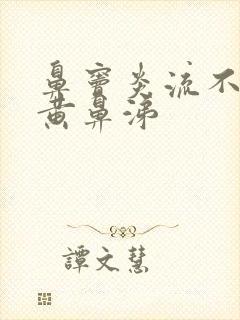 鼻窦炎流不
黄鼻涕
譚文慧